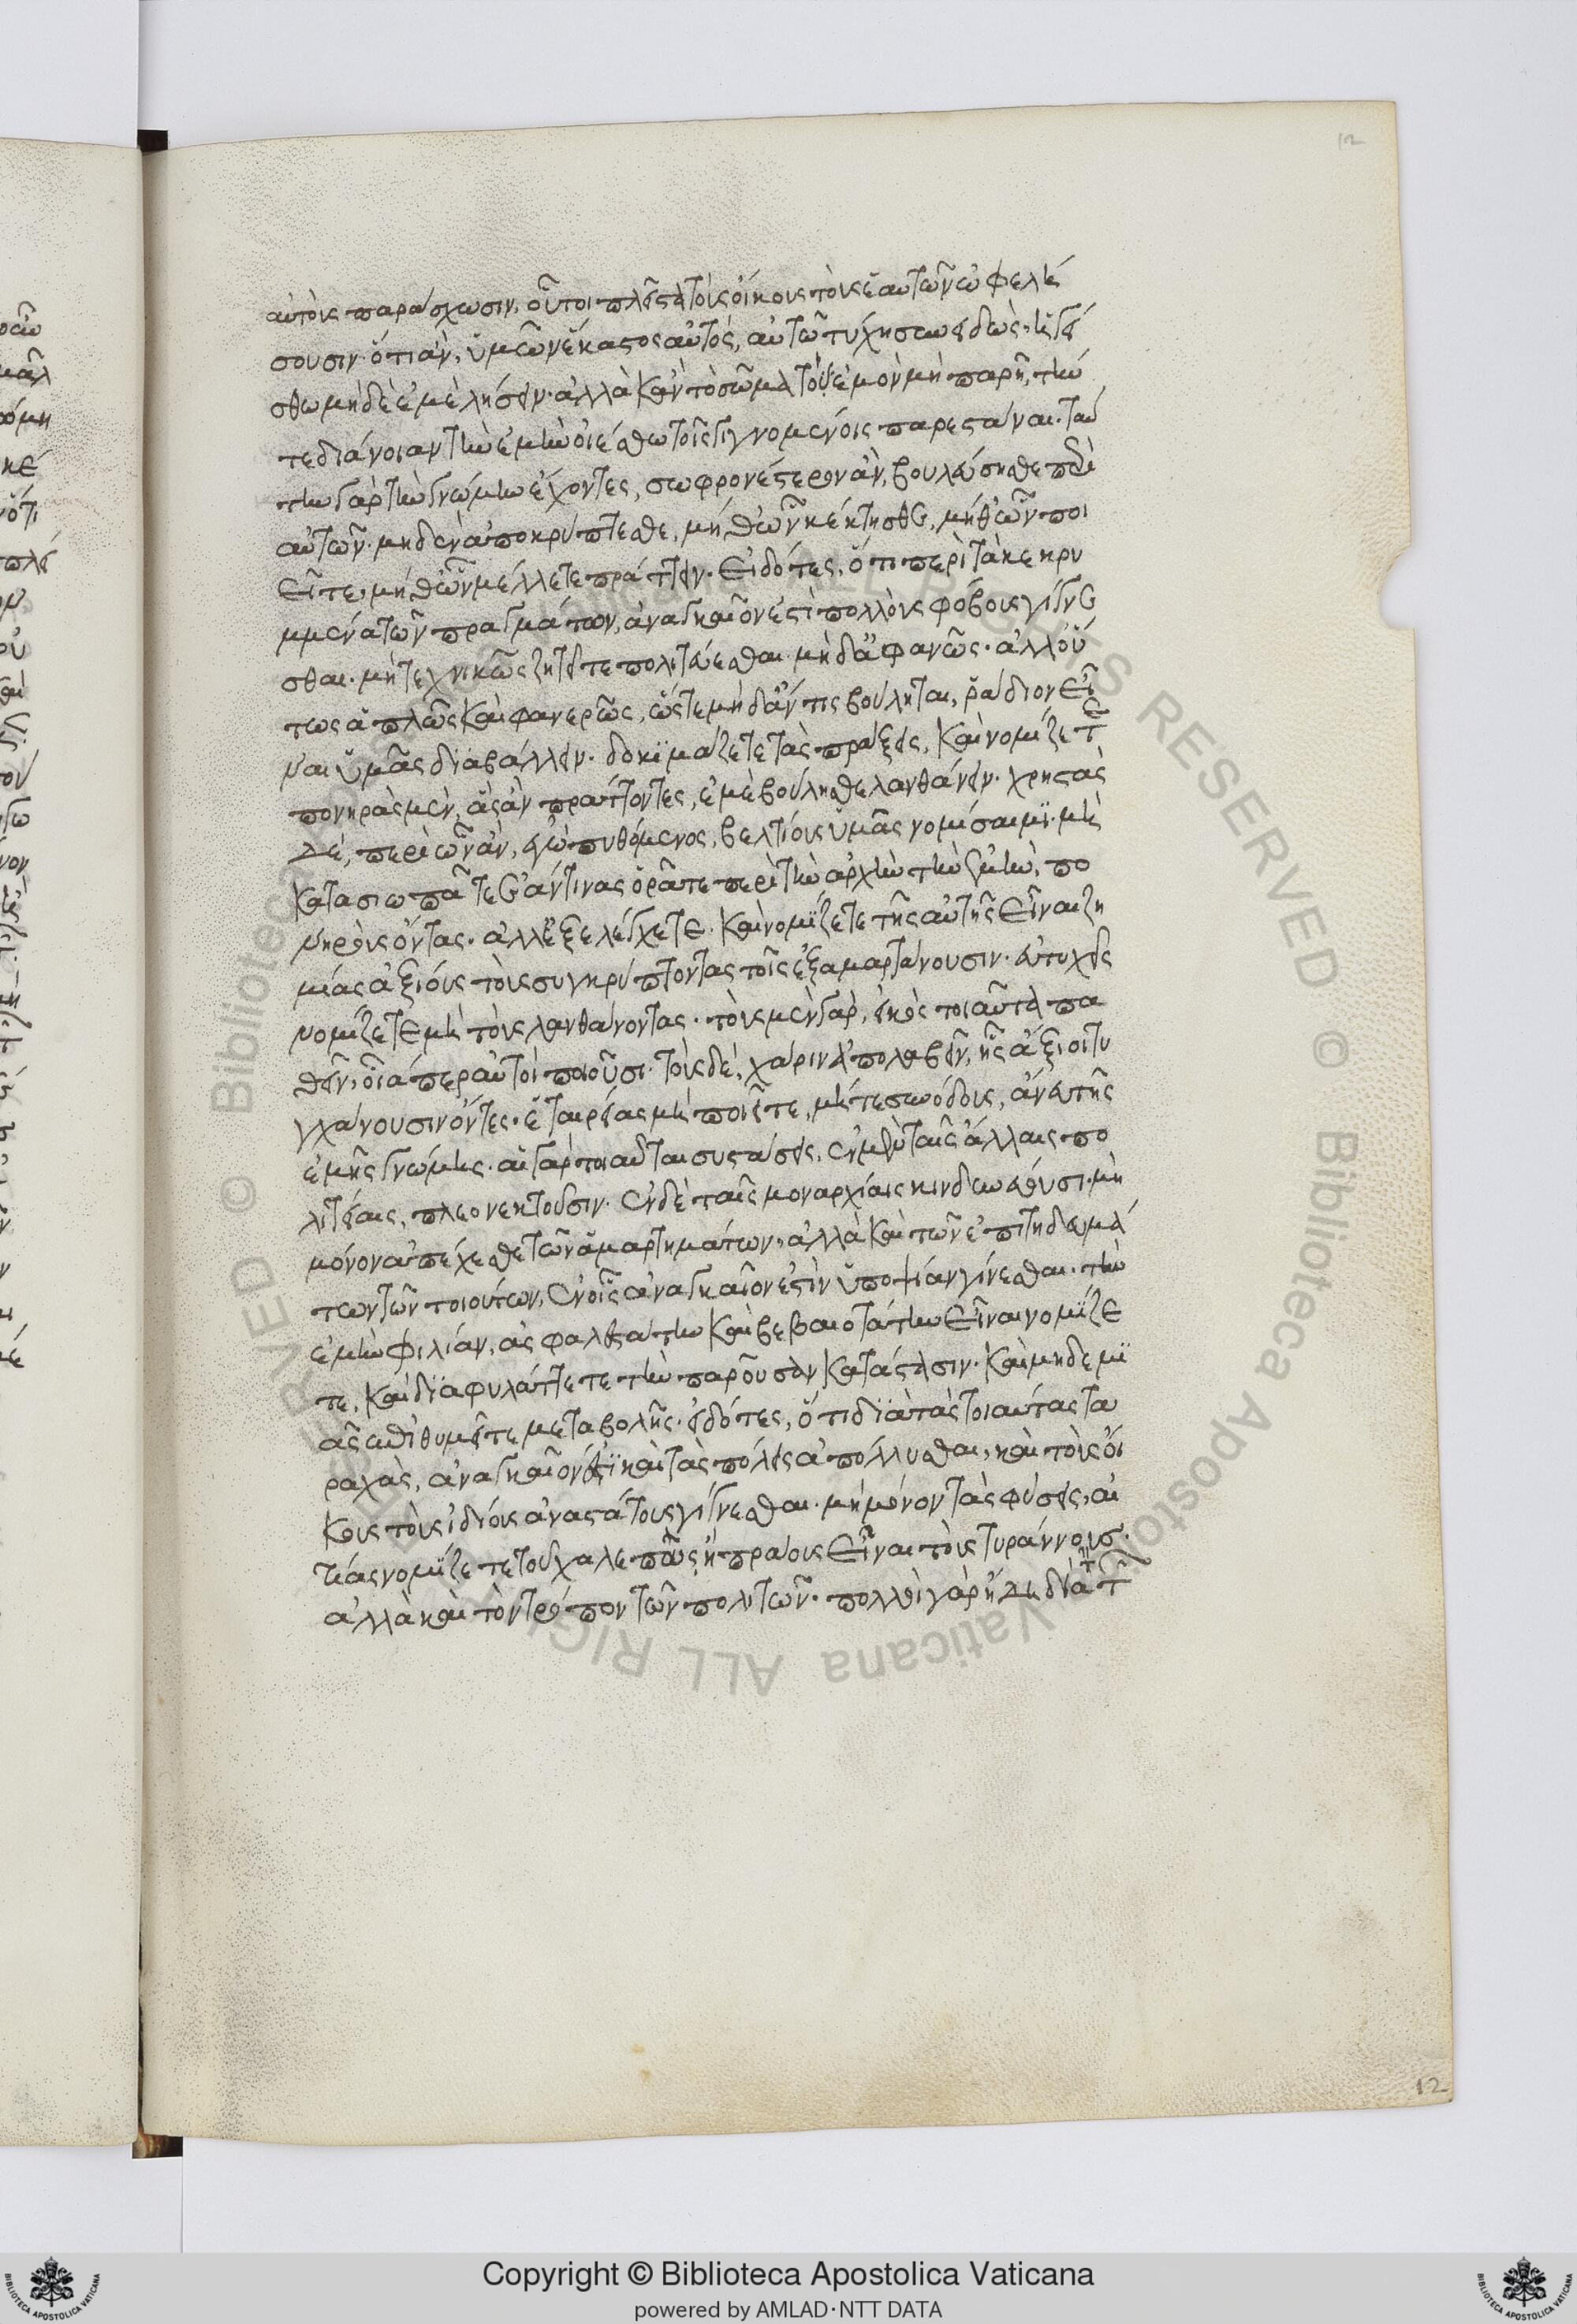 αὐτοὺς παράσχωσιν, οὗτοι πλεῖστα τοὺς οἴκους τοὺς ἑαυτῶν ὠφελή
σουσιν· ὅτι ἂν, ὑμῶν ἕκαστος αὐτὸς, αὑτῶ τύχη συνειδὼς· ἡγεί
σθω μηδὲ ἐμὲ λήσειν· ἀλλὰ κἂν τὸ σῶμα τοὐμὸν μὴ παρῆ, τήν
τε διάνοιαν τὴν ἐμὴν οἰέσθω τοῖς γιγνομένοις παρεστάναι· ταύ
την γὰρ τὴν γνώμην ἔχοντες, σωφρονέστερον ἂν, βουλεύσησθε περὶ
αὐτῶν· μηδὲν ἀποκρύπτεσθε, μήθ' ὧν κέκτησθε, μήθ' ὧν ποι
εῖτε, μήθ' ὧν μέλλετε πράττειν· εἰδότες, ὅτι περὶ τὰ κεκρυ
μμένα τῶν πραγμάτων, ἀναγκαῖον ἐστὶ πολλοὺς φόβους γίγνε
σθαι· μὴ τεχνικῶς ζητεῖτε πολιτεύεσθαι· μηδ' ἀφανῶς· ἀλλ' οὕ
τως ἁπλῶς καὶ φανερῶς, ὥστε μηδ' ἄν τις βούληται, ῥάδιον εἶ
ναι ὑμᾶς διαβάλλειν· δοκιμάζετε τὰς πράξεις, καὶ νομίζετε
πονηρὰς μὲν, ἃς ἂν πράττοντες, ἐμὲ βούλησθε λανθάνειν· χρηστὰς
δὲ, περὶ ὧν ἂν, ἐγὼ πυθόμενος, βελτίους ὑμᾶς νομίσαιμι· μὴ
κατασιωπᾶτε ἄντινας ὁρᾶτε περὶ τὴν ἀρχὴν τὴν ἐμὴν, πο
νηροὺς ὄντας· ἀλλ' ἐξελέγχετε· καὶ νομίζετε τῆς αὐτῆς εἶναι ζη
μίας ἀξίους τοὺς συγκρύπτοντας τοῖς ἐξαμαρτάνουσιν· εὐτυχεῖς
νομίζετε μὴ τοὺς λανθάνοντας· τοὺς μὲν γὰρ, εἰκὸς τοιαῦτα πα
θεῖν, οἷά περ αὐτοὶ ποιοῦσι· τοὺς δὲ, χάριν ἀπολαβεῖν, ἧς ἄξιοι τυ
γχάνουσιν ὄντες· ἑταιρείας μὴ ποιεῖτε, μήτε συνόδους, ἄνευ τῆς
ἐμῆς γνώμης· αἱ γὰρ τοιαῦται συστάσεις, ἐν μὲν ταῖς ἄλλαις πο
λιτείαις, πλεονεκτοῦσιν· ἐν δὲ ταῖς μοναρχίαις κινδυνεύουσι· μὴ
μόνον ἀπέχεσθε τῶν ἁμαρτημάτων, ἀλλὰ καὶ τῶν ἐπιτηδευμά
των τῶν τοιούτων, ἐν οἷς ἀναγκαῖον ἐστὶν ὑποψίαν γίνεσθαι· τὴν
ἐμὴν φιλίαν, ἀσφαλεστάτην καὶ βεβαιοτάτην εἶναι νομίζε
τε, καὶ διαφυλάττετε τὴν παροῦσαν κατάστασιν· καὶ μηδεμι
ᾶς ἐπιθυμεῖτε μεταβολῆς· εἰδότες, ὅτι διὰ τὰς τοιαύτας τα
ραχὰς, ἀναγκαῖον ἐστὶ καὶ τὰς πόλεις ἀπόλλυσθαι, καὶ τοὺς οἴ
κους τοὺς ἰδίους ἀναστάτους γίγνεσθαι· μὴ μόνον τὰς φύσεις, αἰ
τίας νομίζετε τοῦ χαλεποὺς ἢ πράους εἶναι τοὺς τυράννους·
ἀλλὰ καὶ τὸν τρόπον τῶν πολιτῶν· πολλοὶ γὰρ ἤδη διὰ τὴν
12
12
© Biblioteca Apostolica Vaticana ALL RIGHTS RESERVED
Copyright © Biblioteca Apostolica Vaticana
powered by AMLAD·NTT DATA